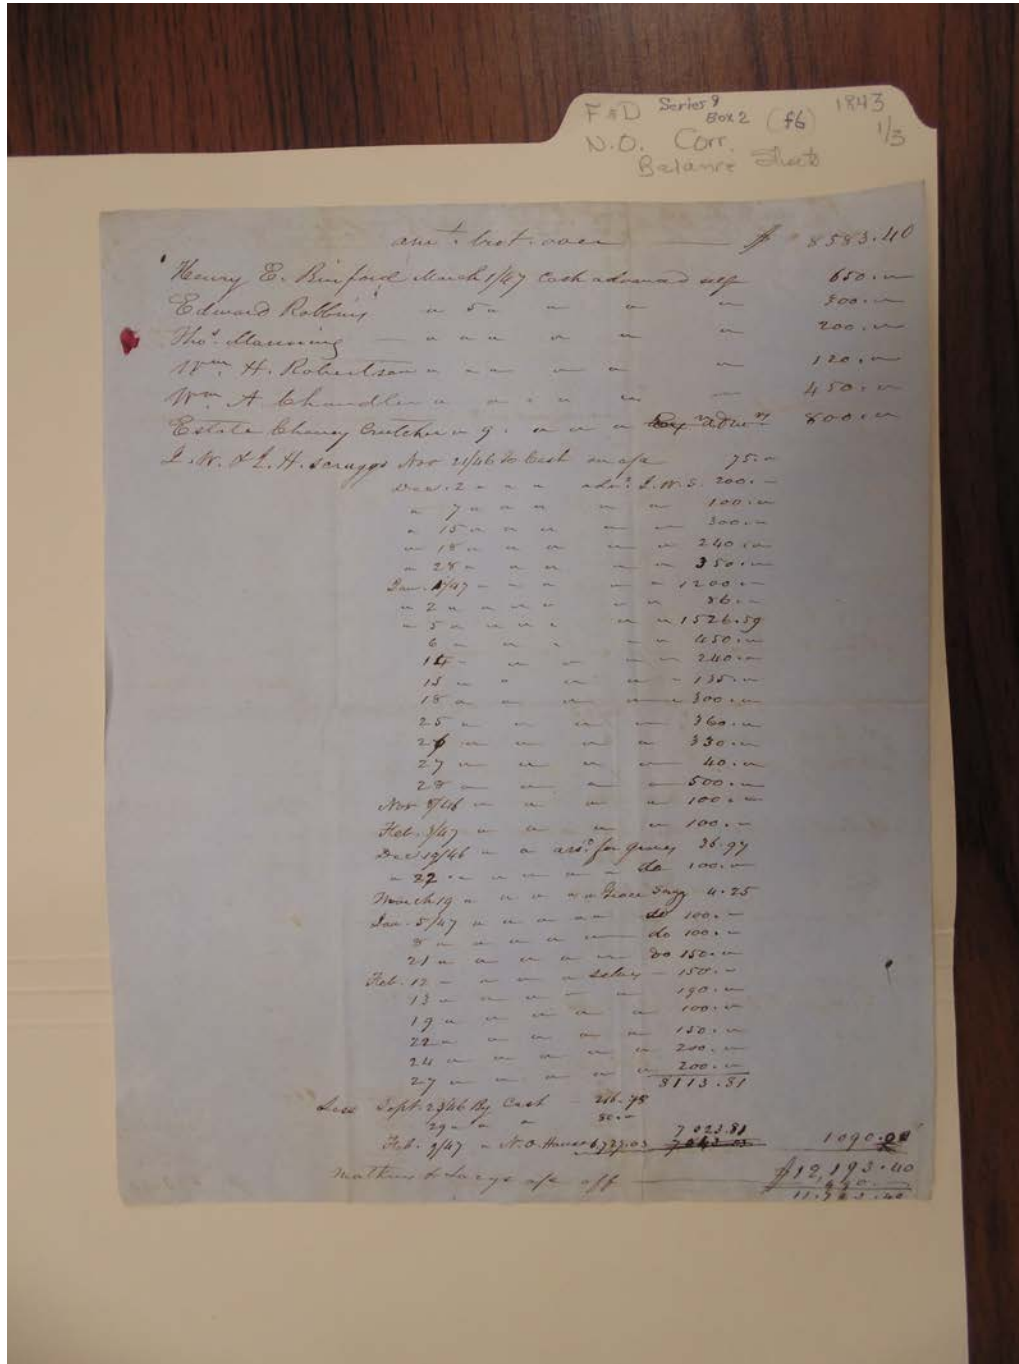 F & D Series 9 1843
Box 2 (f6) 1/3
N.O. Corr.
Balance Sheets
amt. brot. over — $ 8583.40
Henry E. Binford March 1/47 Cash advanced self 650."
Edward Robbins " 5 " " " " 300."
Thos. Manning — " " " " " " 200."
Wm. H. Robertson " " " " " " 120."
Wm A Chandler " " " " " — 450."
Estate Cheney Crutcher " 9 . " " " 800."
J. W. & L. H. Scruggs Nov 21/46 To Cash on a/c 75."
Dec. 2 " " " advd. J. W. S. 200.—
" 7 " " " " " 100."
" 15 " " " " " 300."
" 18 " " " " " 240."
" 28 " " " " " 350."
Jan. 1/47 " " " " " 1200."
" 2 " " " " " " 86."
" 5 " " " " " " 1526.59
6 " " " " " 450."
14 " " " " " 240."
15 " " " " " 135."
18 " " " " " 300."
25 " " " " 360."
26 " " " " 330."
27 " " " " 40."
28 " " " " 500."
Nov 8/46 " " " " 100."
Feb. 3/47 " " " " 100."
Dec 19/46 " " for 36.97
" 22 . " " " " " do 100."
March 19 " " " " " 4.25
Jan. 5/47 " " " " " do 100."
8 " " " " " do 100."
21 " " " " " do 150."
Feb. 12 " " " " — 150."
13 " " " " " 190."
19 " " " " " 100."
22 " " " " " 150."
24 " " " " " 200."
27 " " " " " 200."
8113.81
Less Sept. 23/46 By Cash — 216.78
29 " " " 80."
7023.81
Feb. 9/47 " N.O. House 6727.03 1090.00
$12,193.40
a/c off —